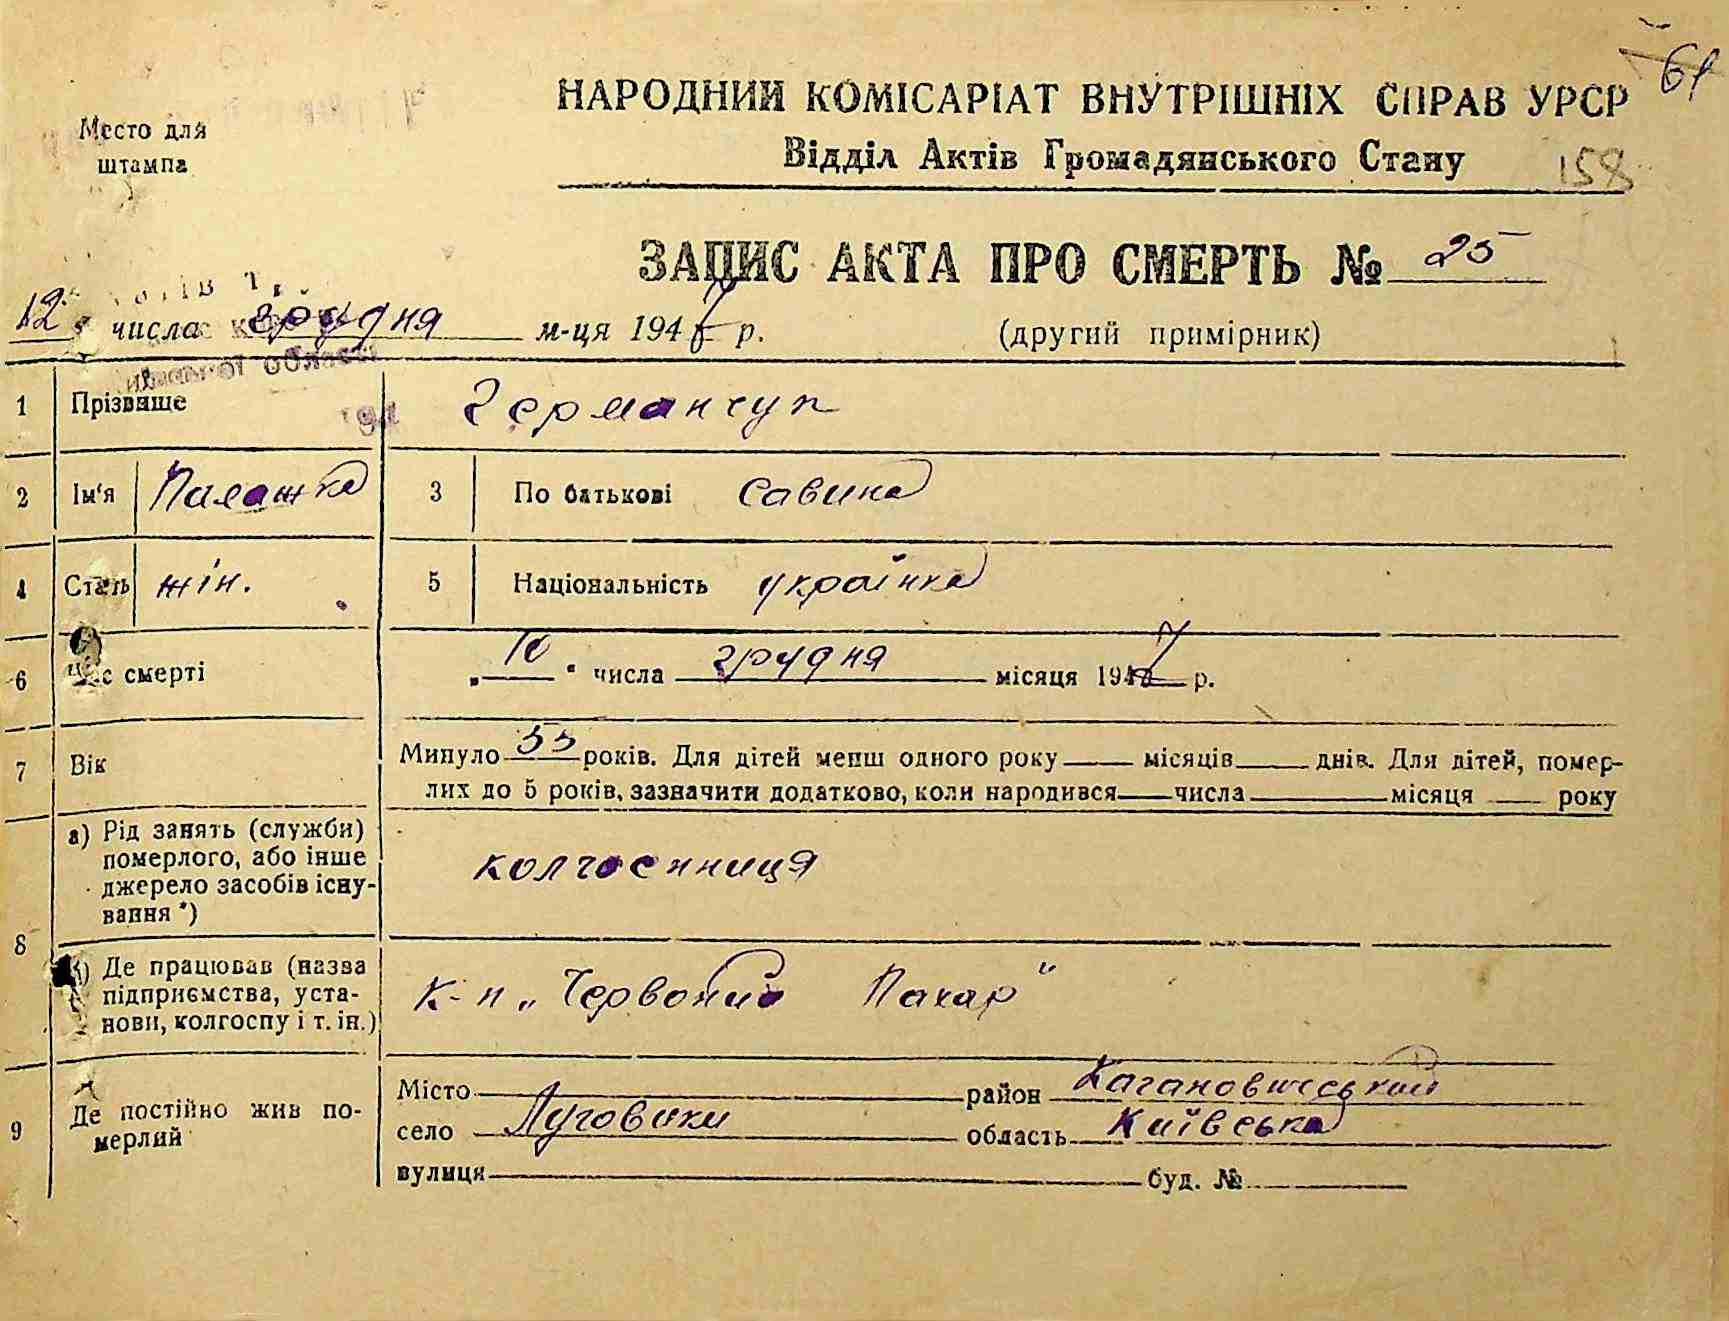 61
НАРОДНИЙ КОМІСАРІАТ ВНУТРІШНІХ СПРАВ УРСР
Место для
штампа
Відділ Актів Громадянського Стану 158
ЗАПИС АКТА ПРО СМЕРТЬ № 25
12 числа грудня м-ця 1947 р. (другий примірник)
области
1 Прізвище Германчук
2 Ім'я Палажка 3 По батькові Савина
4 Стать жін. 5 Національність українка
6 Час смерті „10“ числа грудня місяця 1947 р.
7 Вік Минуло 55 років. Для дітей менш одного року місяців днів. Для дітей, помер-
лих до 5 років, зазначити додатково, коли народився числа місяця року
8 а) Рід занять (служби)
померлого, або інше
джерело засобів існу-
вання *)
колгоспниця
б) Де працював (назва
підприємства, уста-
нови, колгоспу і т. ін.)
к-п „Червоний Пахар"
9 Де постійно жив по-
мерлий
Місто район Кагановичський
село Луговики область Київська
вулиця буд. №